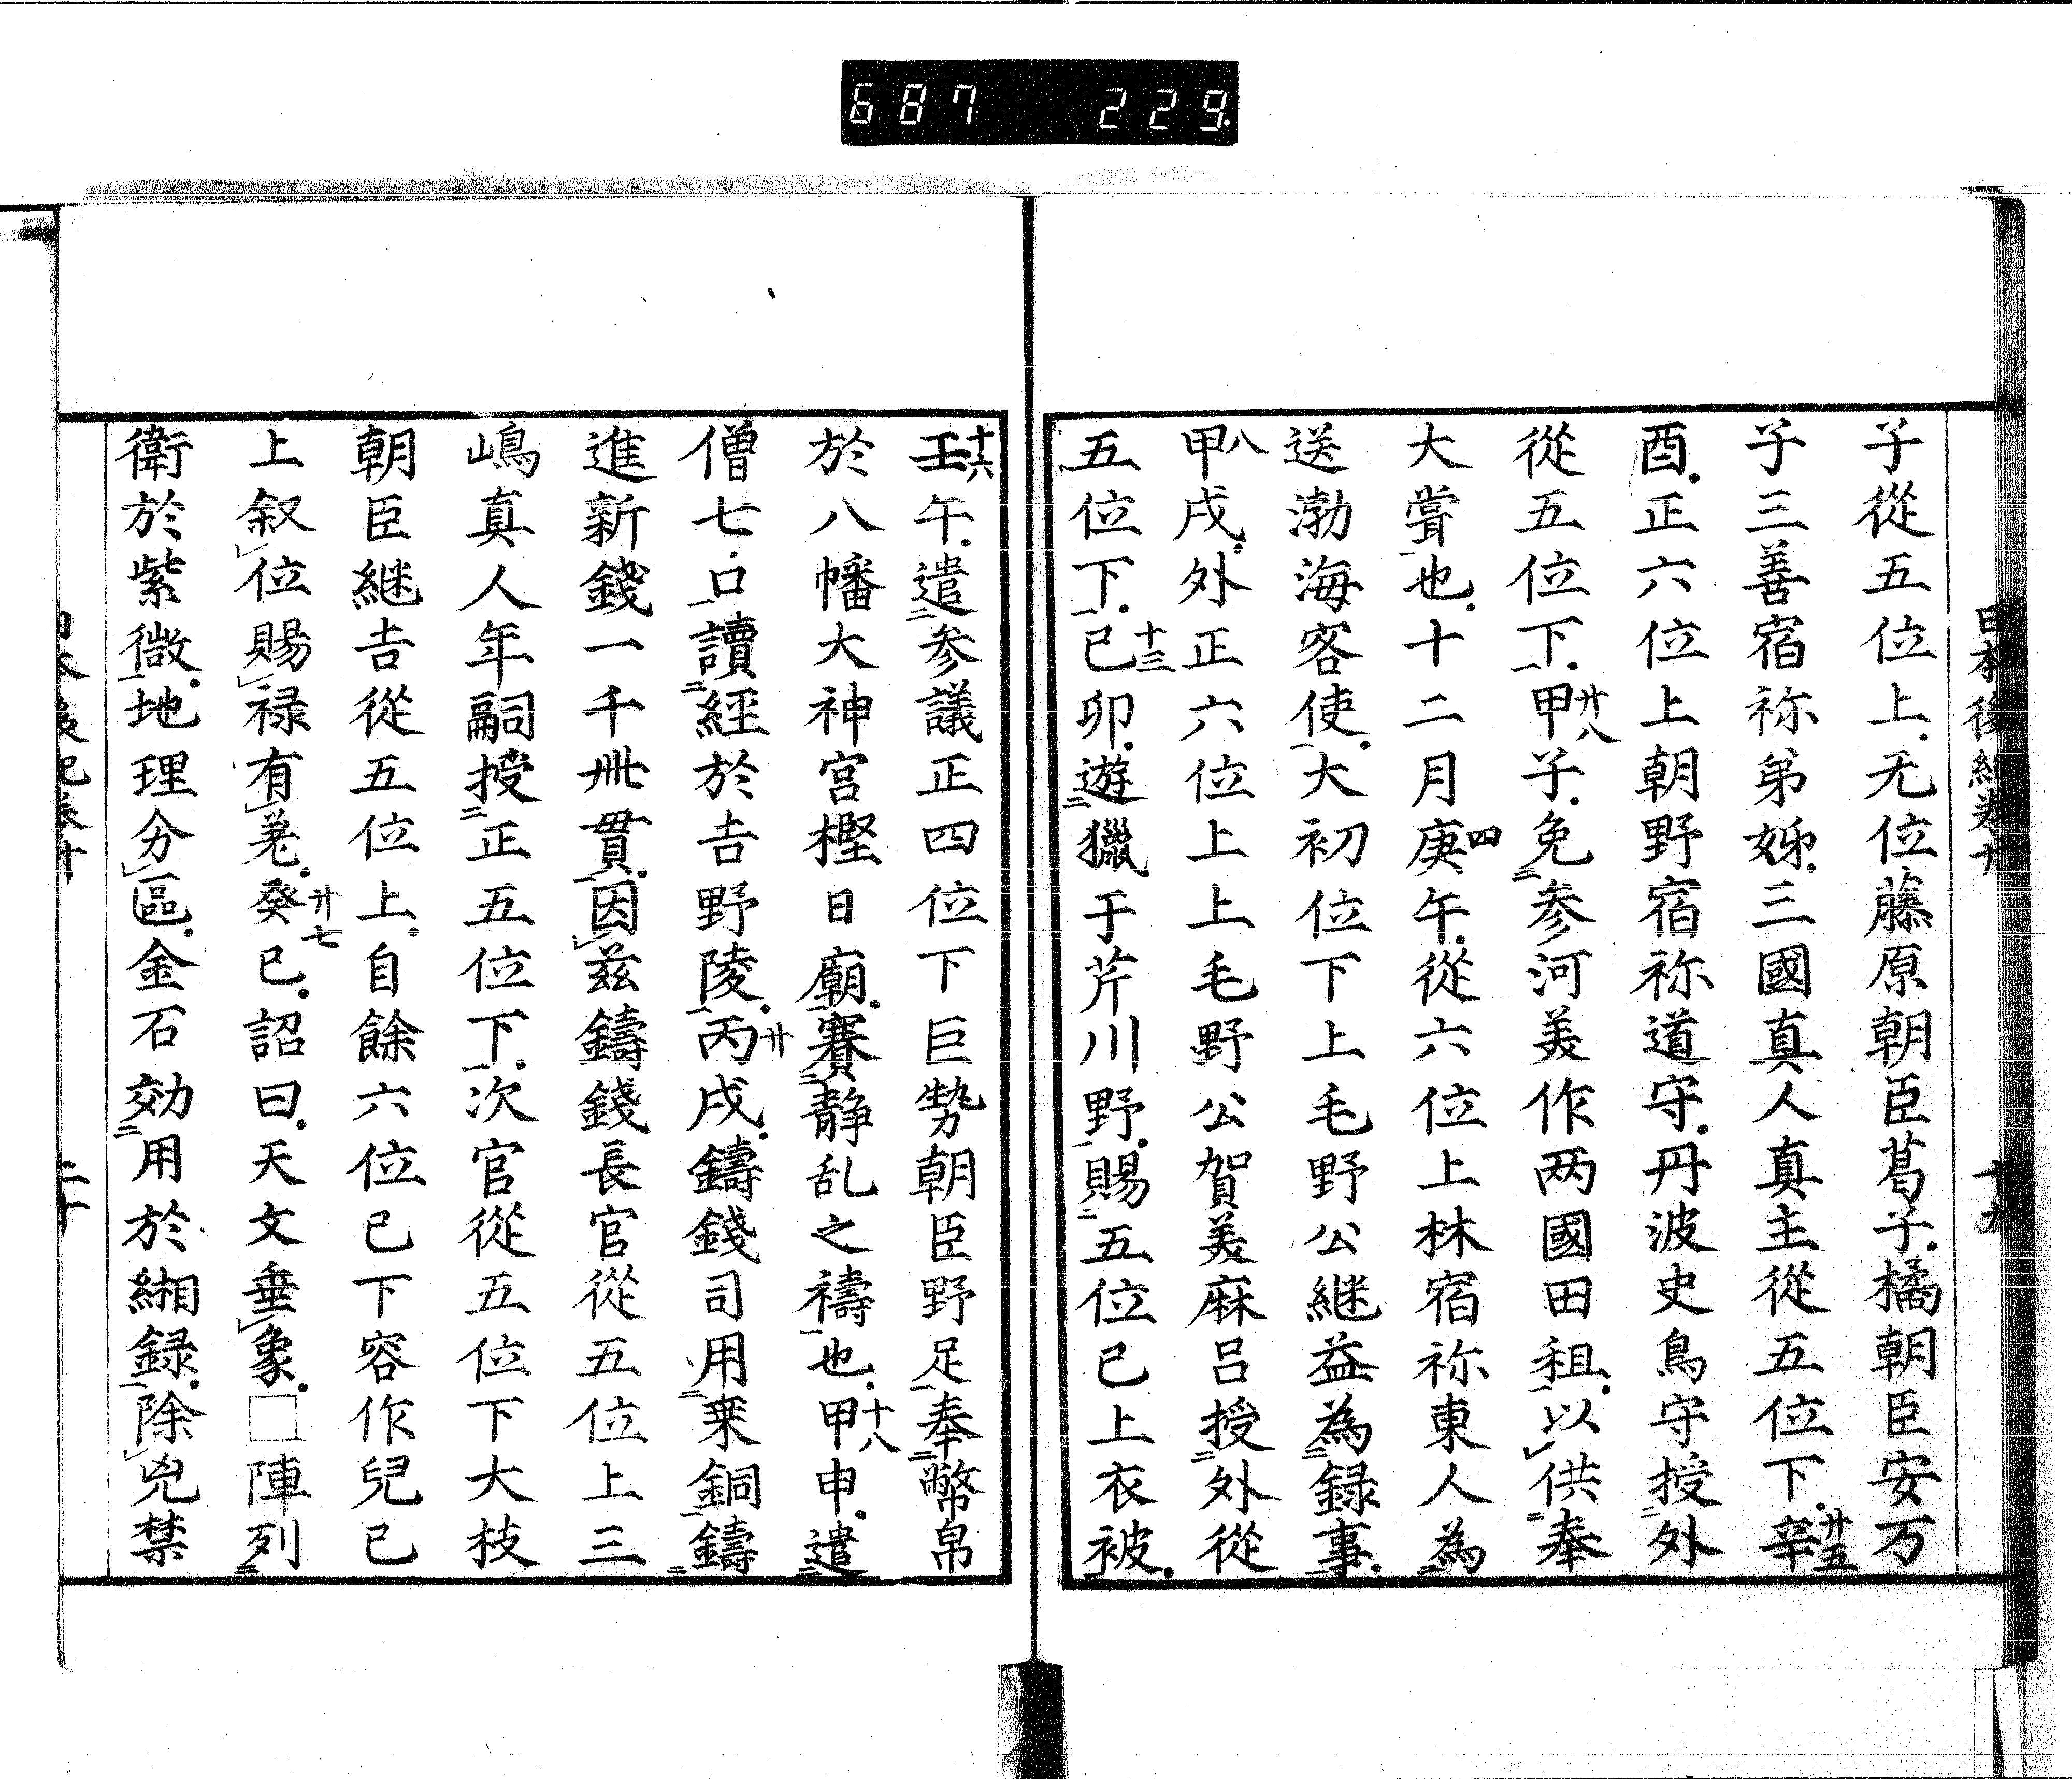 687 229
日本後紀卷十 十九
子從五位上无位藤原朝臣葛子橘朝臣安万
子三善宿祢弟姊三國真人真主從五位下辛廿五
酉正六位上朝野宿祢道守丹波史鳥守授外
從五位下甲廿八子免參河美作两國田租以供奉
大嘗也十二月庚四午從六位上林宿祢東人為
送渤海客使大初位下上毛野公継益為録事
甲八戌外正六位上上毛野公賀美麻呂授外從
五位下己十三卯遊獵于芹川野賜五位已上衣被
壬十六午遣参議正四位下巨勢朝臣野足奉幣帛
於八幡大神宮樫日廟賽静乱之禱也甲十八申遣
僧七口讀經於吉野陵丙廿戌鑄錢司用乗銅鑄
進新錢一千卌貫因兹鑄錢長官從五位上三
嶋真人年嗣授正五位下次官從五位下大枝
朝臣継吉從五位上自餘六位已下容作兒已
上叙位賜禄有差癸廿七巳詔曰天文垂象□陣列
衛於紫微地理分區金石効用於緗録除兇禁
日本後紀卷十 二十